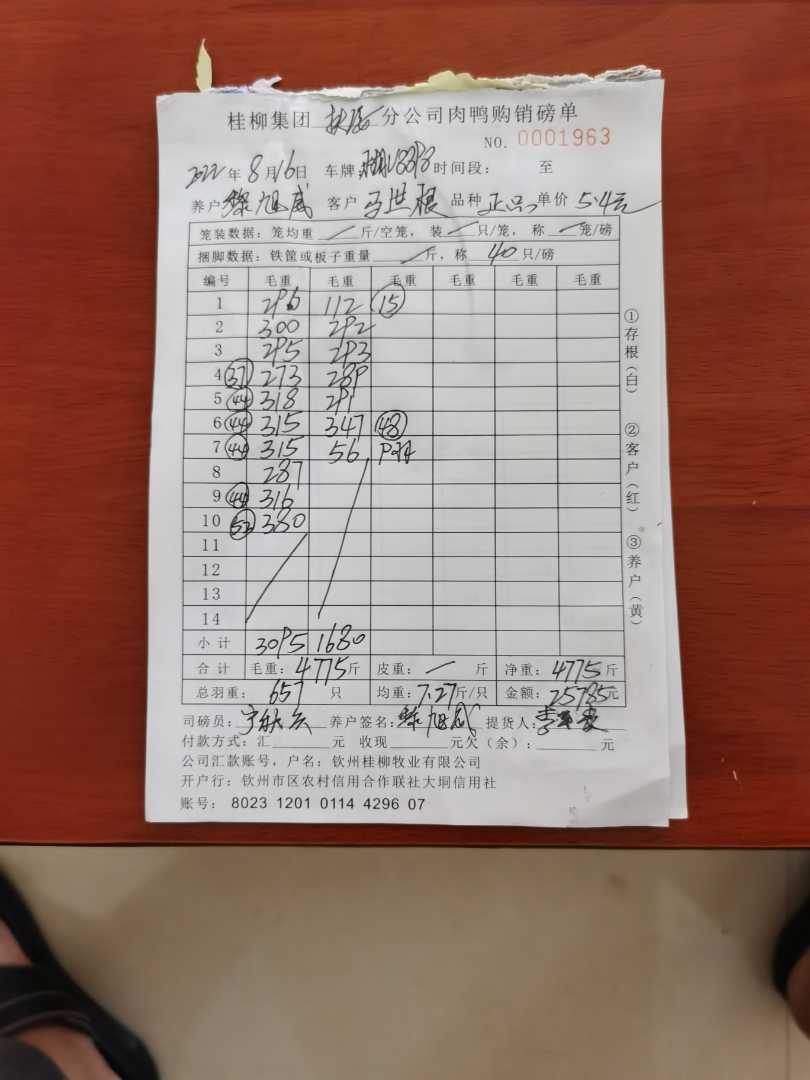 桂柳集团 分公司肉鸭购销磅单
NO. 0001963
2022年8月16日 车牌 时间段： 至
养户 旭威 客户 马世根 品种 正品 单价 5.4元
笼装数据：笼均重 / 斤/空笼，装 / 只/笼，称 / 笼/磅
捆脚数据：铁筐或板子重量 / 斤，称 40 只/磅
编号 毛重 毛重 毛重 毛重 毛重 毛重
1 296 112 15
2 300 292
3 295 293
4 37 273 289
5 44 318 291
6 44 315 347 48
7 44 315 56
8 287
9 44 316
10 52 380
11
12
13
14
小计 3095 1680
合计 毛重：4775斤 皮重：/ 斤 净重：4775斤
总羽重：657 只 均重：7.27斤/只 金额：25785元
司磅员： 养户签名： 旭威 提货人：李
付款方式：汇 元 收现 元欠（余）： 元
公司汇款账号，户名：钦州桂柳牧业有限公司
开户行：钦州市区农村信用合作联社大垌信用社
账号： 8023 1201 0114 4296 07
①存根（白）
②客户（红）
③养户（黄）